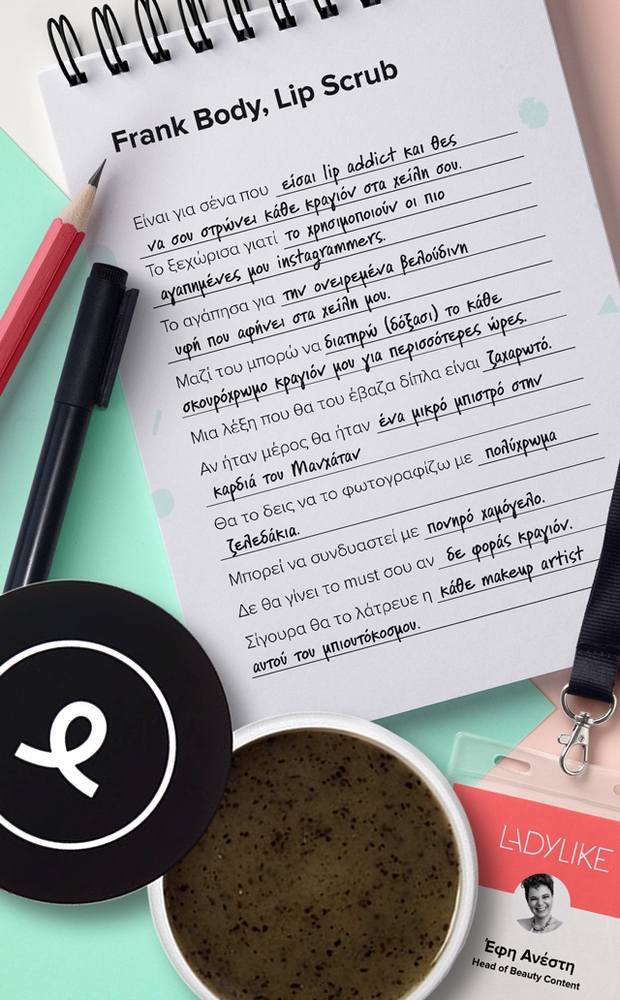 Frank Body, Lip Scrub
Είναι για σένα που είσαι lip addict και θες
να σου στρώνει κάθε κραγιόν στα χείλη σου.
Το ξεχώρισα γιατί το χρησιμοποιούν οι πιο
αγαπημένες μου instagrammers.
Το αγάπησα για την ονειρεμένα βελούδινη
υφή που αφήνει στα χείλη μου.
Μαζί του μπορώ να διατηρώ (δόξασι) το κάθε
σκουρόχρωμο κραγιόν μου για περισσότερες ώρες.
Μια λέξη που θα του έβαζα δίπλα είναι ζαχαρωτό.
Αν ήταν μέρος θα ήταν ένα μικρό μπιστρό στην
καρδιά του Μανχάταν
Θα το δεις να το φωτογραφίζω με πολύχρωμα
ζελεδάκια.
Μπορεί να συνδυαστεί με πονηρό χαμόγελο.
Δε θα γίνει το must σου αν δε φοράς κραγιόν.
Σίγουρα θα το λάτρευε η κάθε makeup artist
αυτού του μπιουτόκοσμου.
LADYLIKE
Έφη Ανέστη
Head of Beauty Content